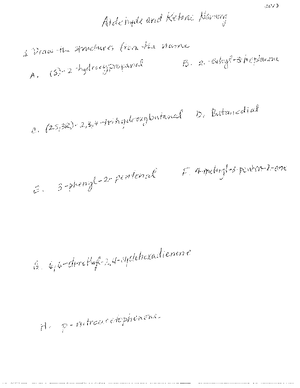 Aldehyde and Ketone Naming
Draw the structures from the name
A. (S)-2-hydroxypropanal
B. 2-ethyl-3-heptanone
C. (2S,3R)-2,3,4-trihydroxybutanal
D. Butanedial
E. 3-phenyl-2-pentenal
F. 4-methyl-3-penten-2-one
H. p-nitroacetophenone